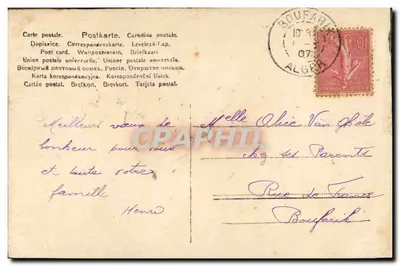 Carte postale. Postkarte. Cartolina postale.
Dopisnice. Correspondenzkarte. Levelezö-Lap.
Post card. Weltpostverein. Briefkaart
Union postale universelle. Unione postale universale.
Всемірный почтовый союзъ. Россія. Открытое письмо.
Karta korespondencyjna. Korespondenční lístek.
Cartão postal. Brefkort. Brevkort. Tarjeta postal.
BOUFARIK
07
ALGER
10
Meilleurs vœux de
bonheur pour vous
et toute votre
famille
Henri
CPAPHIL
Melle Alice Van
chez ses Parents
Rue de France
Boufarik